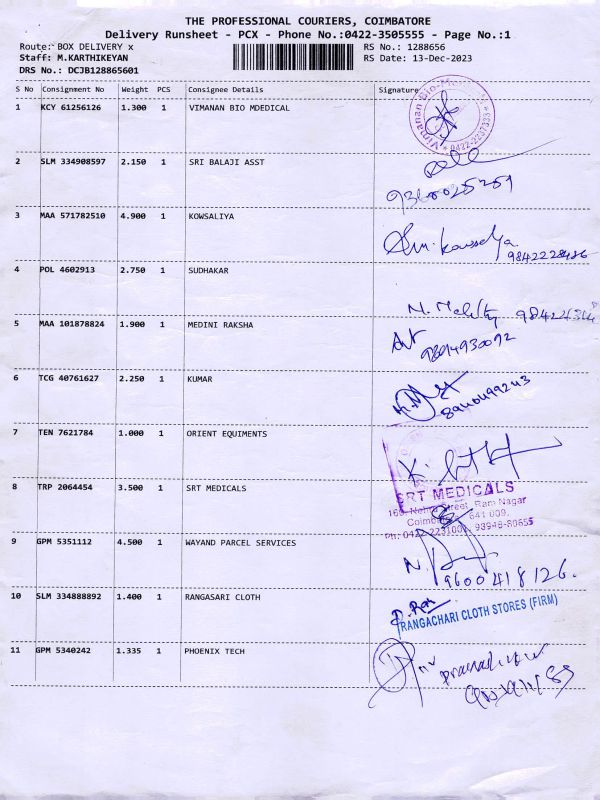 THE PROFESSIONAL COURIERS, COIMBATORE
Delivery Runsheet - PCX - Phone No.:0422-3505555 - Page No.:1
Route: BOX DELIVERY x
RS No.: 1288656
Staff: M.KARTHIKEYAN
RS Date: 13-Dec-2023
DRS No.: DCJB128865601
S No Consignment No Weight PCS Consignee Details Signature
1 KCY 61256126 1.300 1 VIMANAN BIO MDEDICAL
Vimanan Bio-Me
0422-2237333
2 SLM 334908597 2.150 1 SRI BALAJI ASST
9360025251
3 MAA 571782510 4.900 1 KOWSALIYA
9842228486
4 POL 4602913 2.750 1 SUDHAKAR
5 MAA 101878824 1.900 1 MEDINI RAKSHA
9894930092
6 TCG 40761627 2.250 1 KUMAR
8940499243
7 TEN 7621784 1.000 1 ORIENT EQUIMENTS
8 TRP 2064454 3.500 1 SRT MEDICALS
SRT MEDICALS
Nehru Street, Ram Nagar
Coimbatore 641 009.
93948-80655
9 GPM 5351112 4.500 1 WAYAND PARCEL SERVICES
9600418126.
10 SLM 334888892 1.400 1 RANGASARI CLOTH
RANGACHARI CLOTH STORES (FIRM)
11 GPM 5340242 1.335 1 PHOENIX TECH